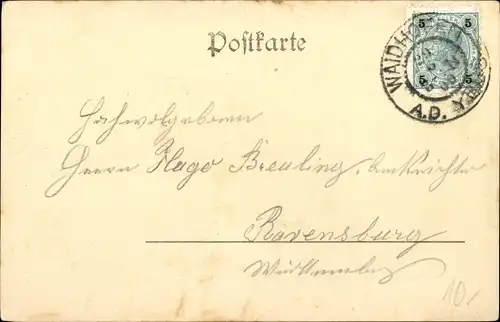 Postkarte
5 5
5 5
WAIDHOFEN
A.D. YBBS
Hochwolgeboren
Herrn Hugo Breuling, Amtsrichter
Ravensburg
Württemberg
10,